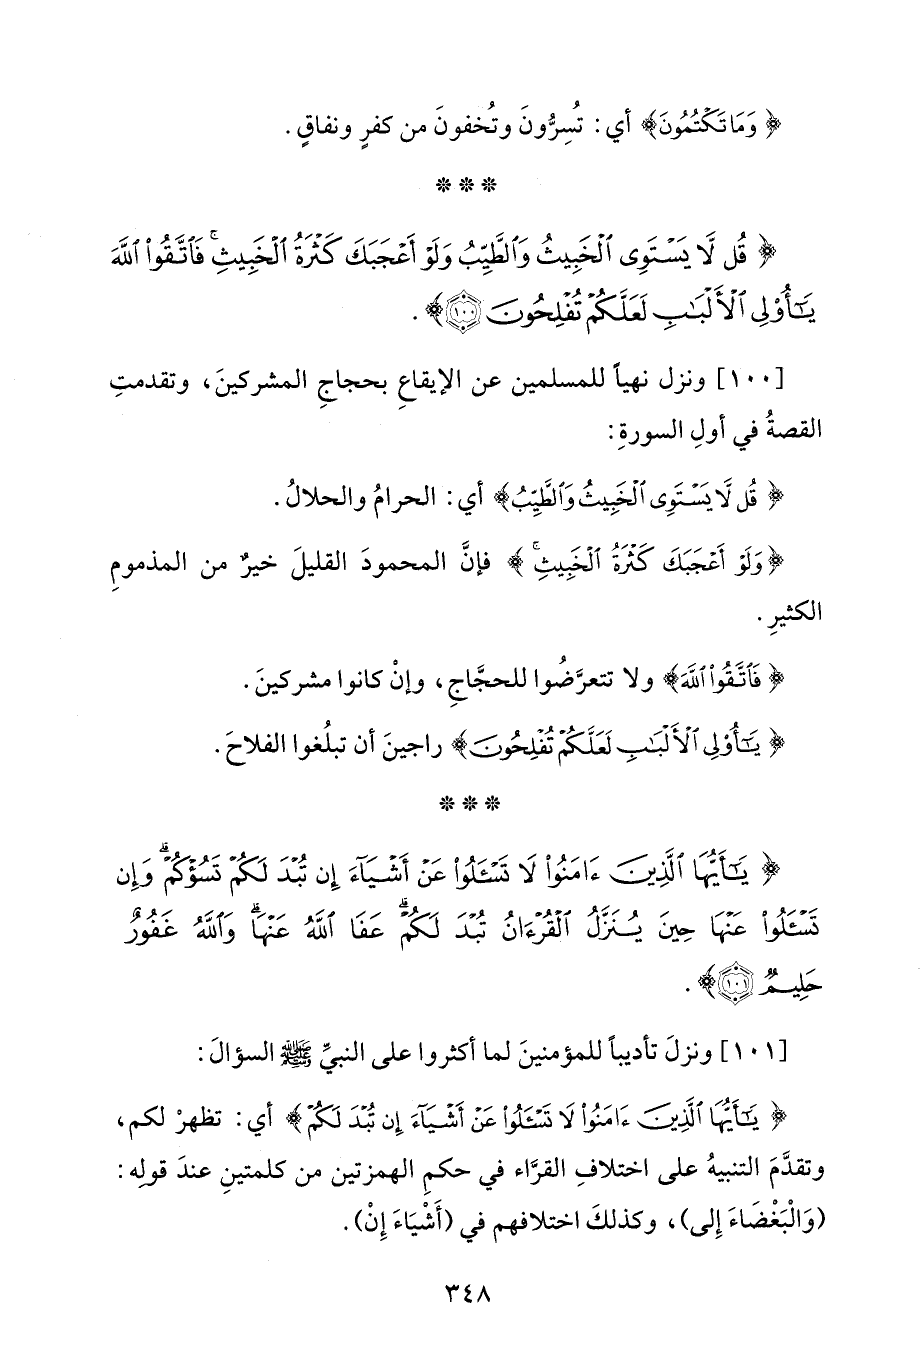 ﴿وَمَا تَكْتُمُونَ﴾ أي: تُسِرُّونَ وتُخفونَ من كفرٍ ونفاقٍ.
* * *
﴿قُل لَّا يَسْتَوِى الْخَبِيثُ وَالطَّيِّبُ وَلَوْ أَعْجَبَكَ كَثْرَةُ الْخَبِيثِ ۚ فَاتَّقُوا اللَّهَ
يَٰٓأُو۟لِى الْأَلْبَٰبِ لَعَلَّكُمْ تُفْلِحُونَ ١٠٠﴾.
[١٠٠] ونزل نهياً للمسلمين عن الإيقاعِ بحجاجِ المشركينَ، وتقدمتِ
القصةُ في أولِ السورةِ:
﴿قُل لَّا يَسْتَوِى الْخَبِيثُ وَالطَّيِّبُ﴾ أي: الحرامُ والحلالُ.
﴿وَلَوْ أَعْجَبَكَ كَثْرَةُ الْخَبِيثِ ۚ﴾ فإنَّ المحمودَ القليلَ خيرٌ من المذمومِ
الكثيرِ.
﴿فَاتَّقُوا اللَّهَ﴾ ولا تتعرَّضُوا للحجَّاجِ، وإنْ كانوا مشركينَ.
﴿يَٰٓأُو۟لِى الْأَلْبَٰبِ لَعَلَّكُمْ تُفْلِحُونَ﴾ راجينَ أن تبلُغوا الفلاحَ.
* * *
﴿يَٰٓأَيُّهَا الَّذِينَ ءَامَنُوا لَا تَسْـَٔلُوا عَنْ أَشْيَآءَ إِن تُبْدَ لَكُمْ تَسُؤْكُمْ ۖ وَإِن
تَسْـَٔلُوا عَنْهَا حِينَ يُنَزَّلُ الْقُرْءَانُ تُبْدَ لَكُمْ ۗ عَفَا اللَّهُ عَنْهَا ۗ وَاللَّهُ غَفُورٌ
حَلِيمٌ ١٠١﴾.
[١٠١] ونزلَ تأديباً للمؤمنينَ لما أكثروا على النبيِّ ﷺ السؤالَ:
﴿يَٰٓأَيُّهَا الَّذِينَ ءَامَنُوا لَا تَسْـَٔلُوا عَنْ أَشْيَآءَ إِن تُبْدَ لَكُمْ﴾ أي: تظهرْ لكم،
وتقدَّمَ التنبيهُ على اختلافِ القرَّاء في حكمِ الهمزتين من كلمتينِ عندَ قولِه:
(وَالْبَغْضَاءَ إِلى)، وكذلكَ اختلافهم في (أَشْيَاءَ إِنْ).
٣٤٨